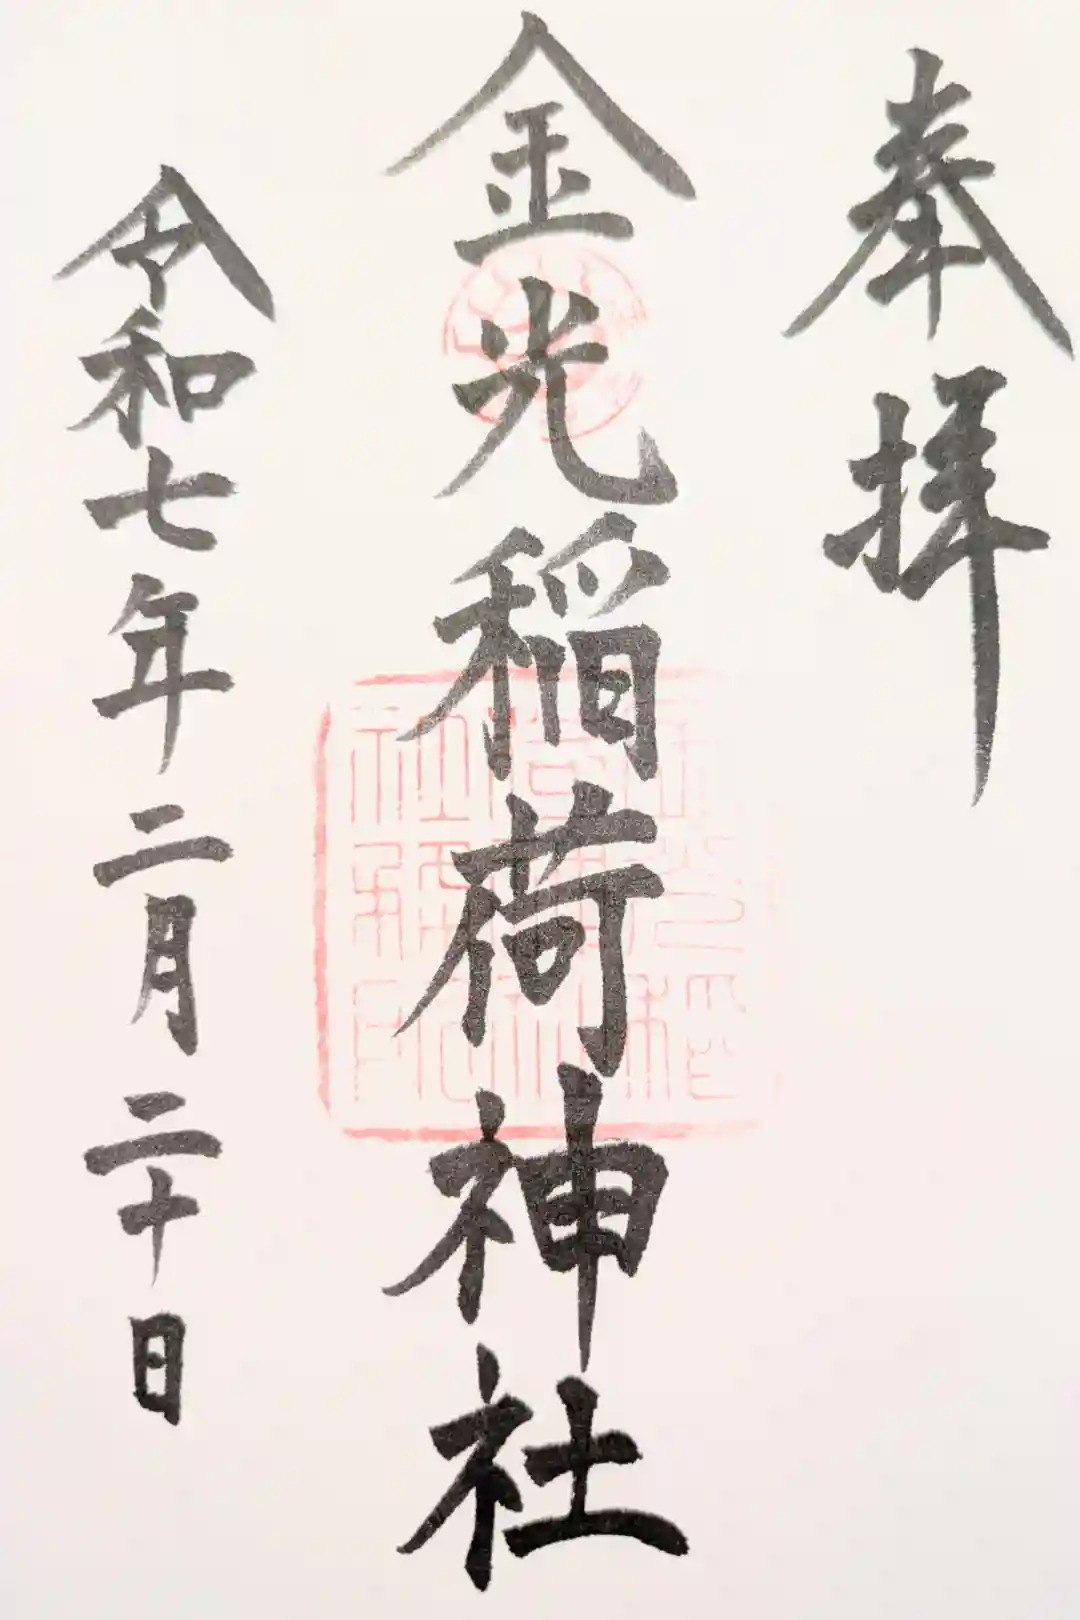 奉拝
金光稲荷神社
令和七年二月二十日